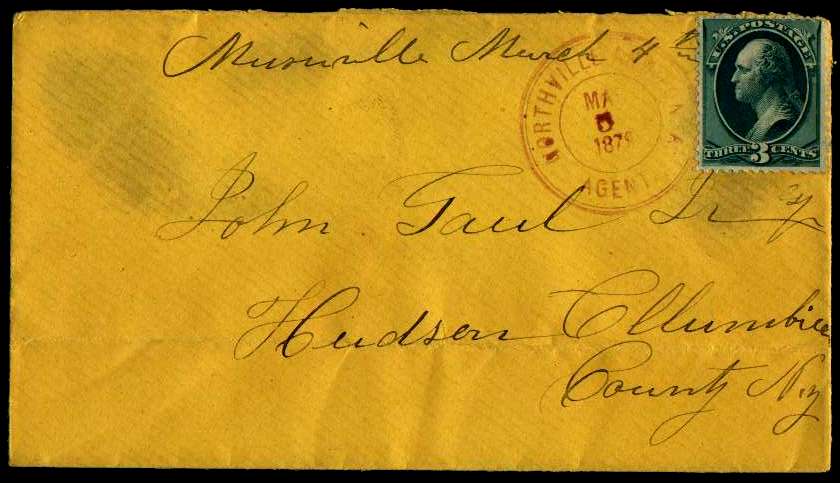 Munsville March 4th
NORTHVILLE
MA
5
1879
AGENT
U.S. POSTAGE
THREE 3 CENTS
John Gaul Jr
Hudson Collumbia
County N.y